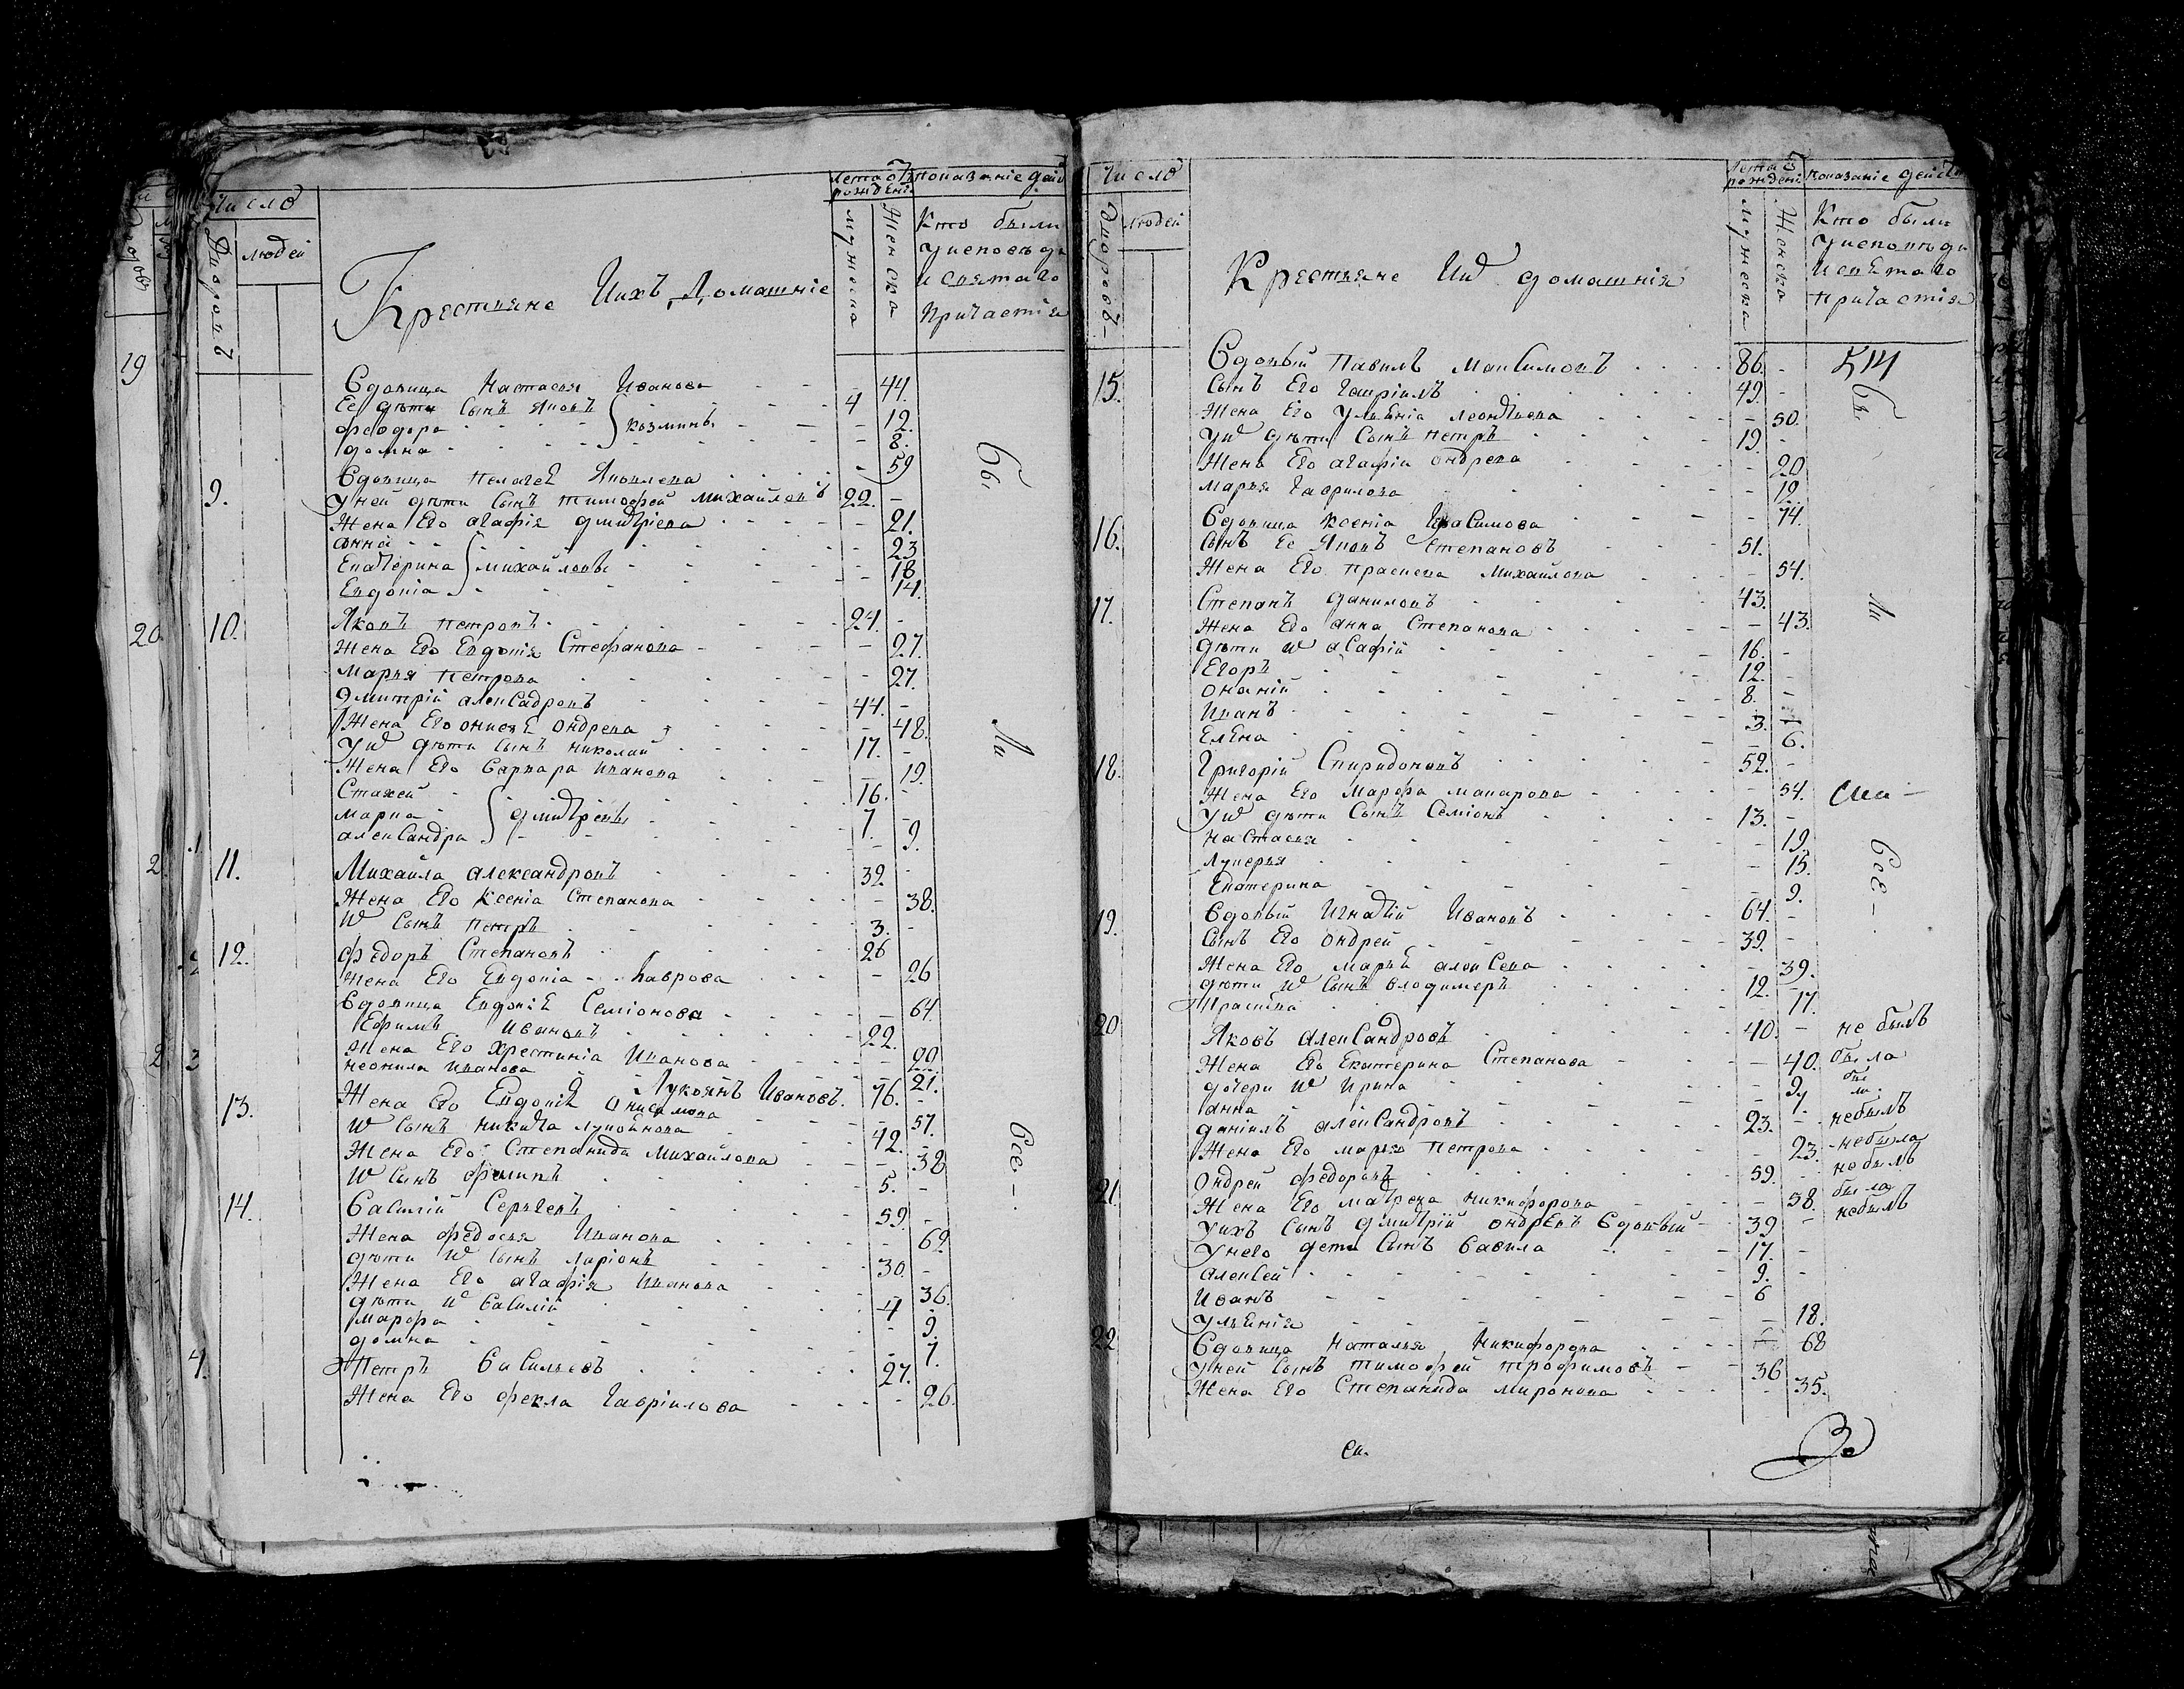 Число
Дворовъ
людей
Крестьяне Ихъ Домашніе
Лета отъ рожденіе
мужеска
Женска
показаніе дейс
Кто были
У исповеди
И святаго
Причастія
Вдовица Настасья Иванова - - 44.
Ее дѣти Сынъ Яковъ - - 4
Феодора } козмины - - 12.
Домна - - 8.
Вдовица Пелагеѣ Яковлева - 59
9. У ней дѣти Сынъ тимофей михайловъ 22. -
Жена Его агафія дмитріева - - 21.
анна - - 23
Екатерина } михайловы - - 18
Евдокіа - - 14.
10. Яковъ петровъ - - 24. -
Жена Его Евдокія Стефанова - - 27.
Марья петрова - - 27.
Дмитрій алексадровъ 44. -
Жена Его онисьѣ ондрева - - 48.
У них дѣти Сынъ николай - 17. -
Жена Его Варвара иванова - 19.
Стахей - 16. -
марка } дмитреевы - 7. -
александра - - 9.
11. Михайла александровъ - 32. -
Жена Его Ксеніа Степанова - - 38.
их Сынъ петръ - 3. -
12. Федоръ Степановъ - 26
Жена Его Евдокіа - Лаврова - - 26
Вдовица Евдокіѣ Семіонова - - 64
Ефимъ Ивановъ - 22.
Жена Его Хрестиніа Иванова - - 22.
неонила иванова - - 21.
13. Лукоянъ Ивановъ. 76. -
Жена Его Евдокіѣ Онисимова - 57.
их Сынъ никита лукоянова - 42. -
Жена Его Степанида Михайлова - - 38
их Сынъ филипъ - 5. -
14. Василій Сергеевъ - 59. -
Жена федосья Иванова - - 62.
дѣти их Сынъ ларіонъ - 30. -
Жена Его агафія иванова - - 36.
дѣти их Василій - 4 -
марфа - - 9.
домна - - 7.
Петръ Васильевъ - 27.
Жена Его фекла Гавріилова - - 26.
бы
ли
все -
Число
Дворовъ
людей
Крестьяне Их домашнія
Лета отъ рожденіе
мужеска
Женска
показаніе дейст
Кто были
У исповеди
И святаго
причастія
Вдовый Павилъ Максимовъ - 86. - 514
15. Сынъ Его гавріилъ - 49. -
Жена Его Ульѣніа леонтиева - - 50.
У их дѣти Сынъ петръ - 19. -
Жена Его агафіи ондрева - - 20
марья гаврилова - - 19.
16. Вдовица ксеніа Герасимова - - 74.
Сынъ Ее Яковъ Степановъ - 51.
Жена Его праскева Михайлова - - 54.
17. Степанъ даниловъ - 43.
Жена Его анна Степанова - - 43.
дѣти их агафій - 16. -
Егоръ - 12. -
ананій - 8. -
Иванъ - 3. -
Елѣна - - 6.
18. Григорій Спиридоновъ - 52. -
Жена Его Марфа макарова - - 54.
У их дѣти Сынъ Семіонъ - 13. -
настасья - - 19.
лукерья - - 15.
Екатерина - - 9.
19. Вдовый Игнатій Ивановъ - 64. -
Сынъ Его ондрей - 39. -
Жена Его марьѣ алексева - - 39.
дѣти их Сынъ владимеръ - 12. -
Праскева - - 17.
20 Яковъ Александровъ - 40. - не былъ
Жена Его Екатерина Степанова - - 40. была
дочери их Ирина - - 9. бы
анна - - 7. ли
даніилъ александровъ - 23. - небылъ
Жена Его марья петрова - - 23. небыла
21. Ондрей федоровъ - 59. - небылъ
Жена Его матрена никифорова - - 58. была
У ихъ Сынъ дмитрій ондрѣевъ Вдовый - 39 - небылъ
У него дети Сынъ Вавила - 17. -
алексей - 9. -
Иванъ - 6
Ульѣнія - - 18.
22 Вдовица Наталья Никифорова - - 68
У ней Сынъ тимофей трофимовъ - 36
Жена Его Степанида миронова - - 35.
бы
ли
все -
19
20